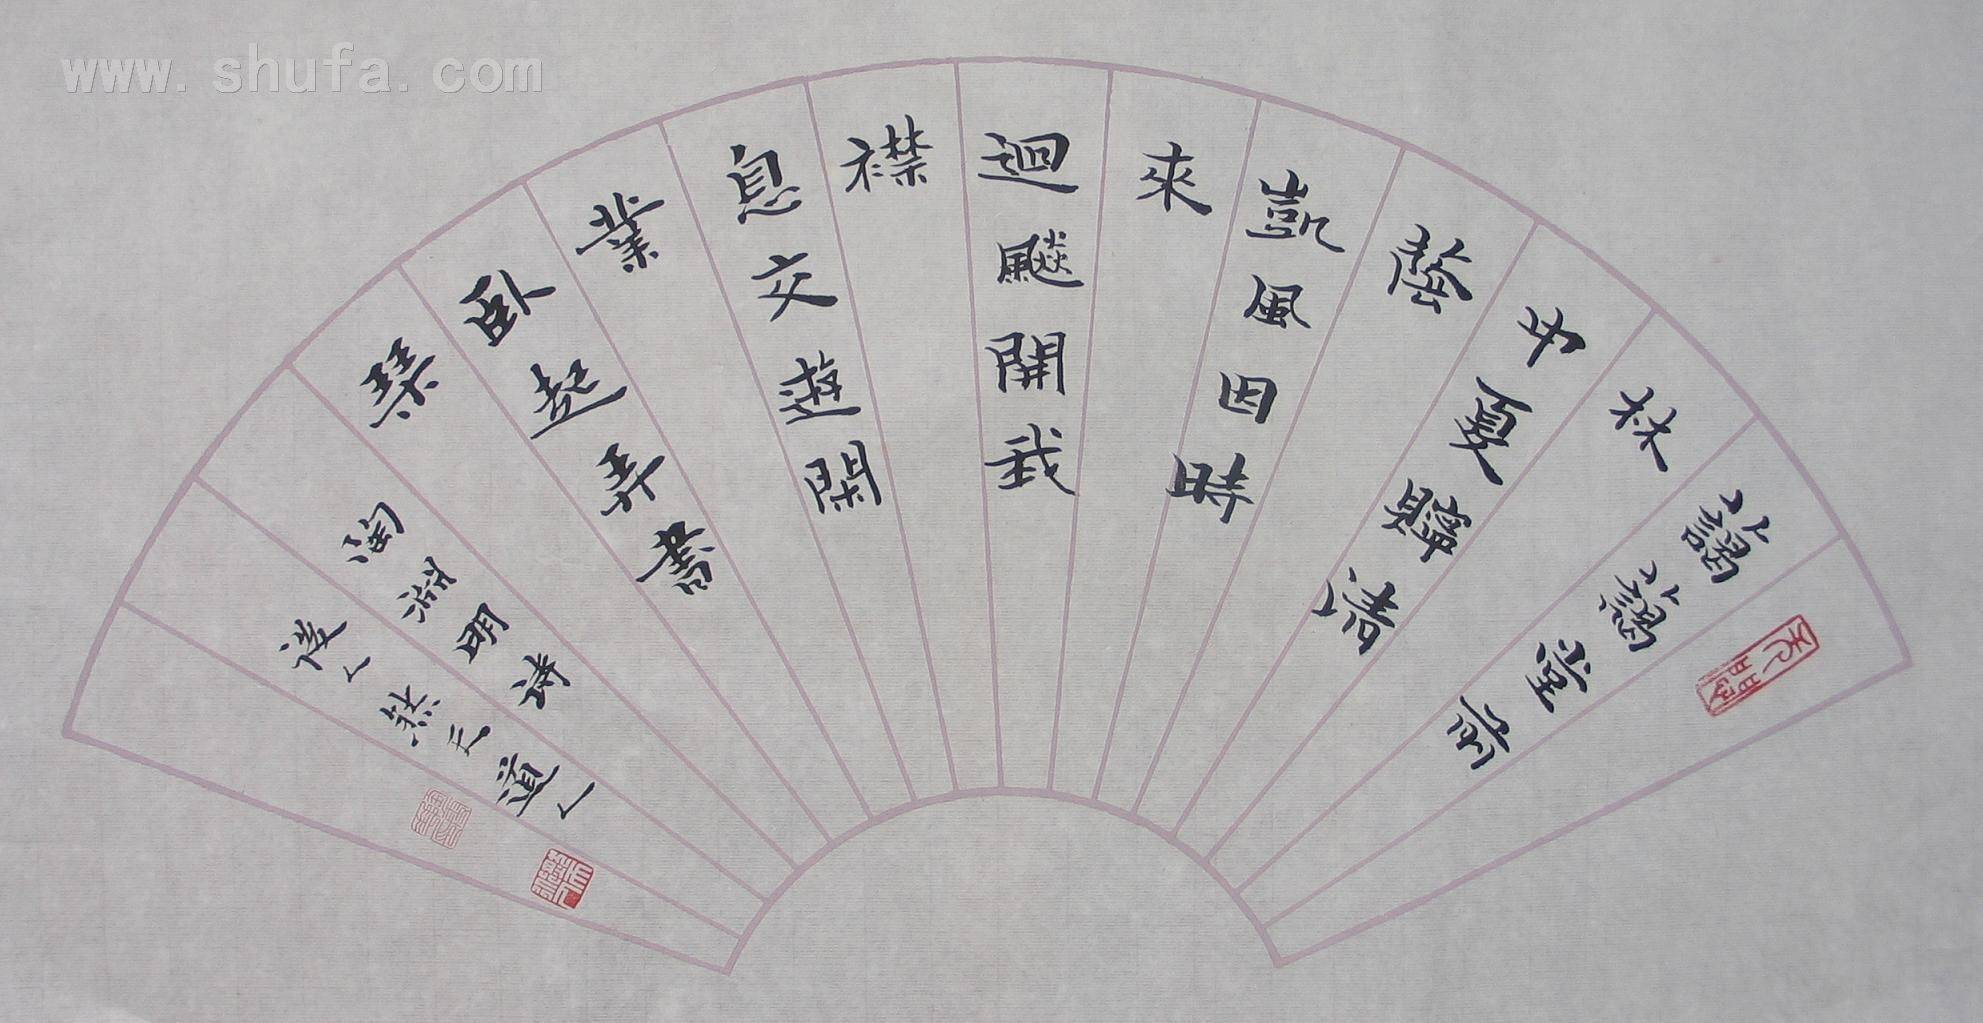 www.shufa.com
藹藹堂前
林
中夏貯清
蔭
凱風因時
來
迴飈開我
襟
息交遊閑
業
臥起弄書
琴
陶淵明詩